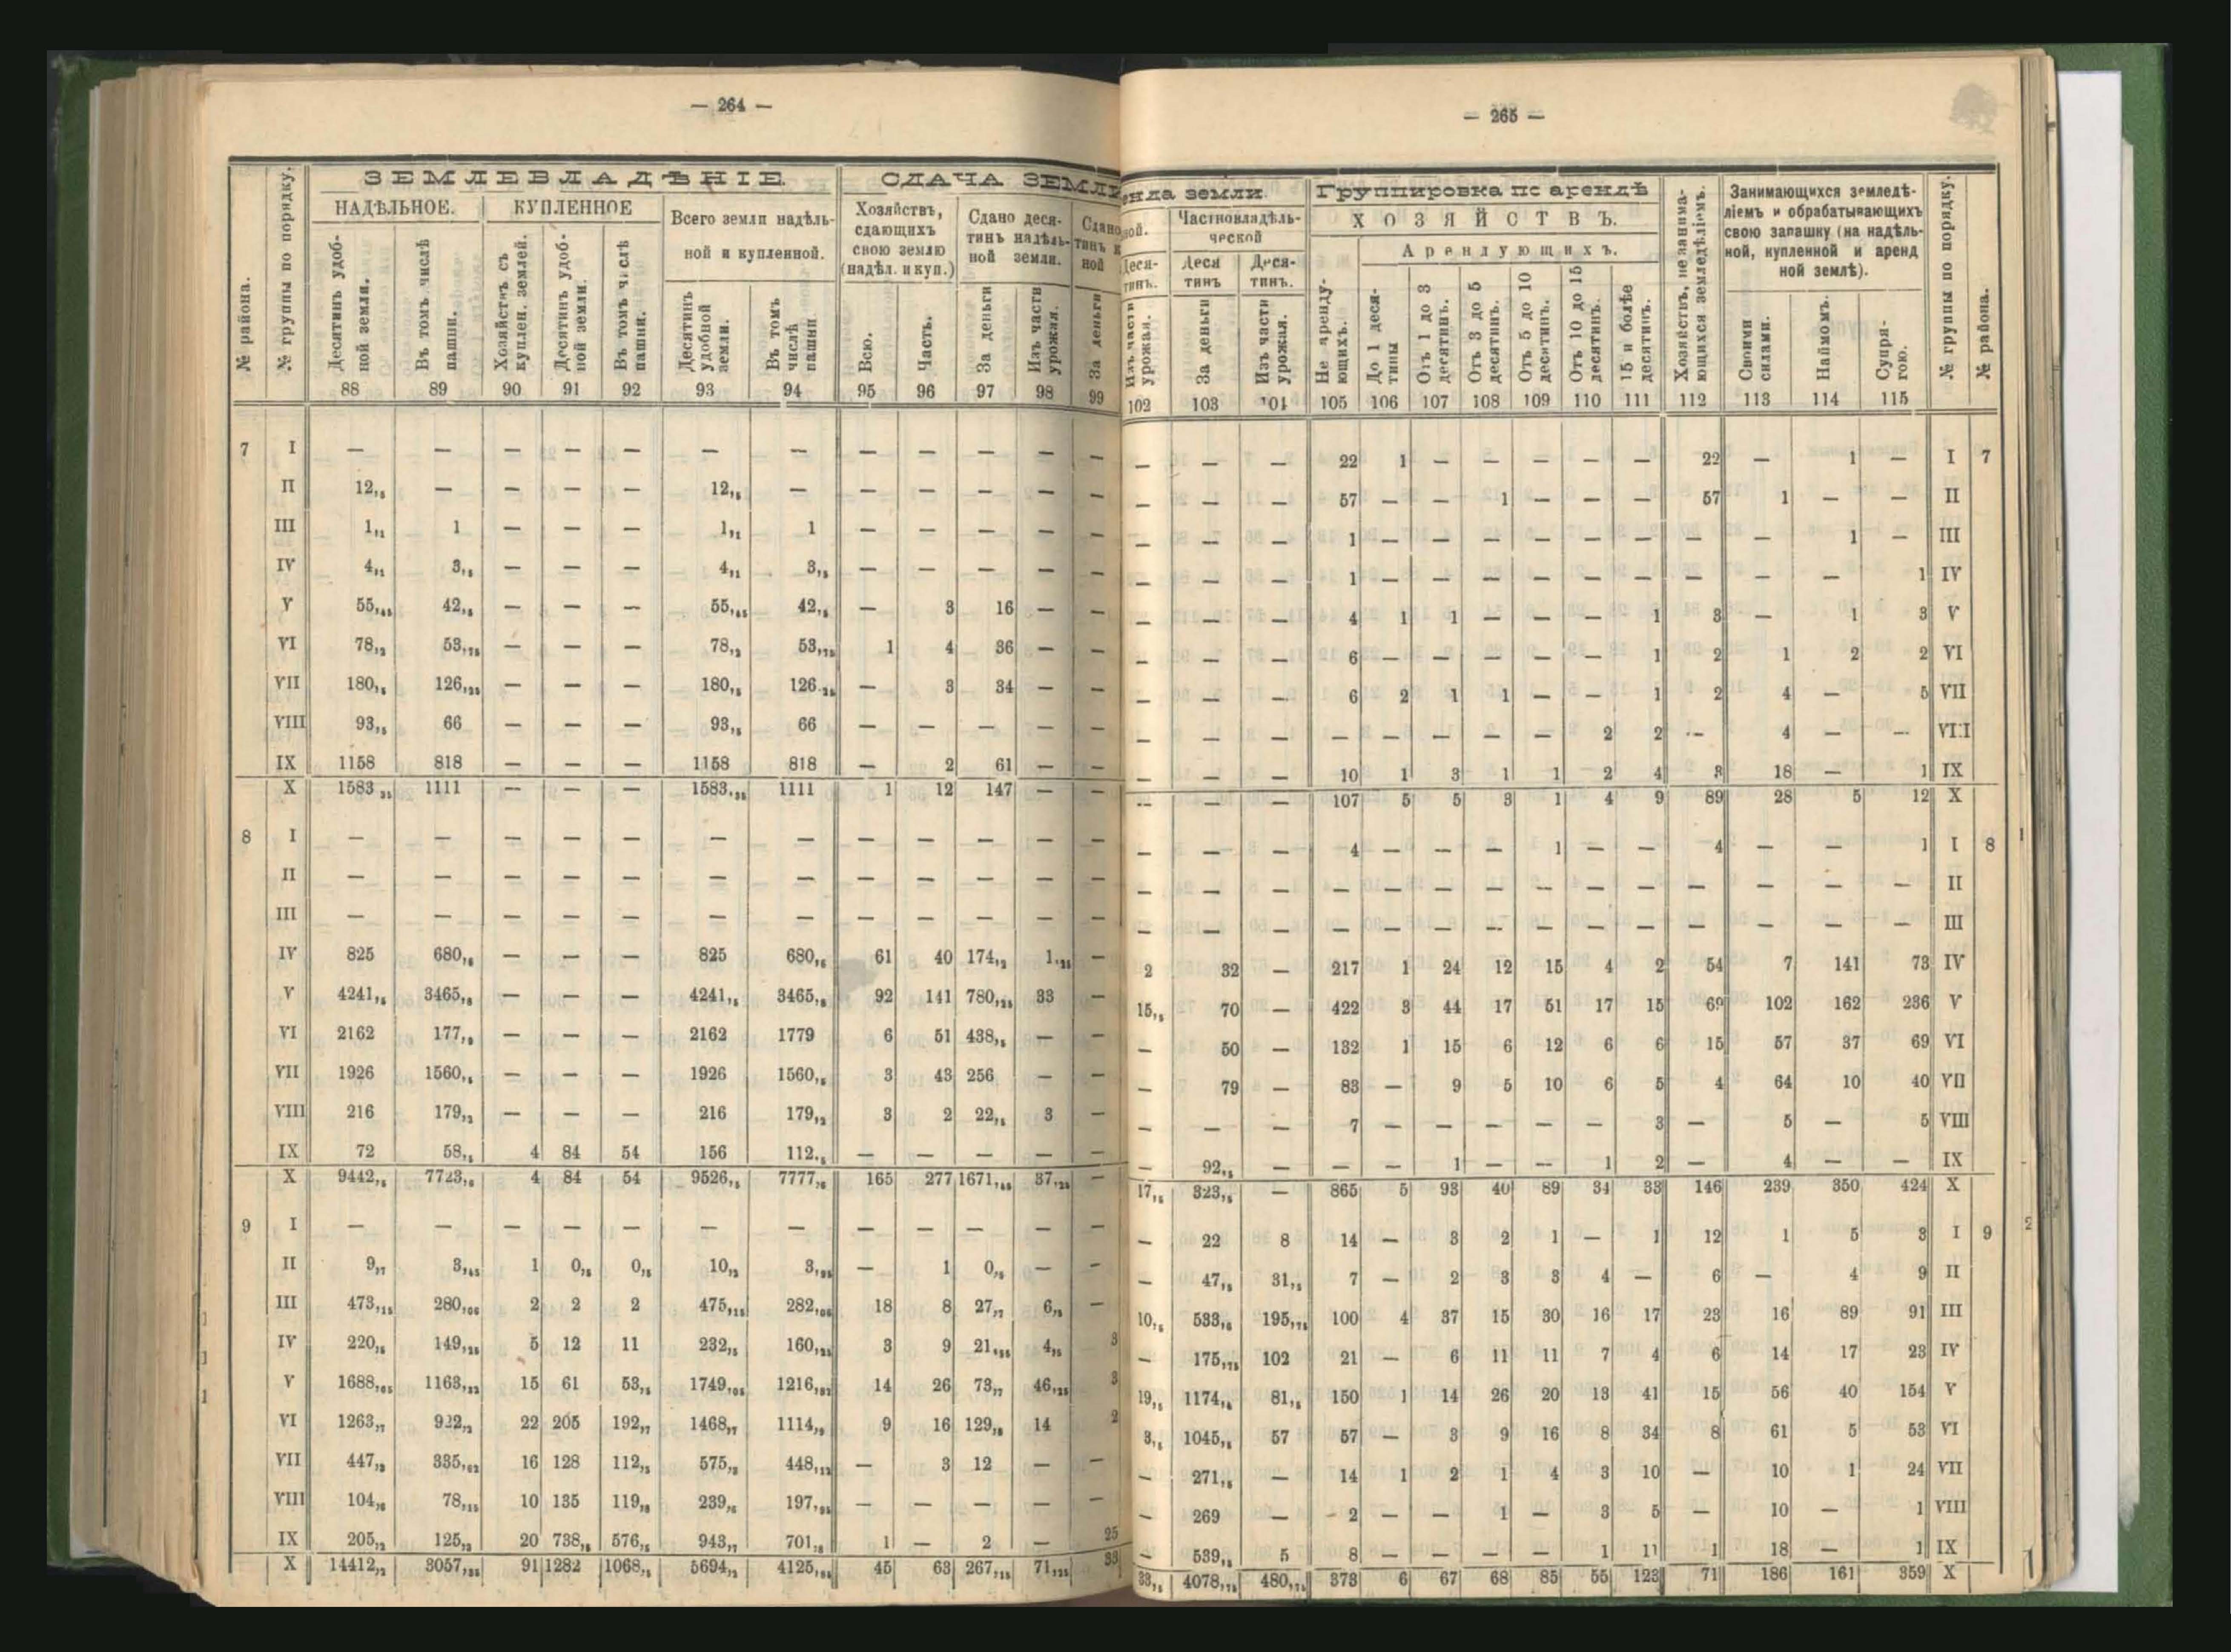 — 264 —
ЗЕМЛЕВЛАДѢНІЕ. СДАЧА ЗЕМЛИ
№ района.
№ группы по порядку.
НАДѢЛЬНОЕ. КУПЛЕННОЕ
Всего земли надѣль-
ной и купленной.
Хозяйствъ,
сдающихъ
свою землю
(надѣл. и куп.)
Сдано деся-
тинъ надѣль-
ной земли.
Десятинъ удоб-
ной земли.
Въ томъ числѣ
пашни.
Хозяйствъ съ
куплен. землей.
Десятинъ удоб-
ной земли.
Въ томъ числѣ
пашни.
Десятинъ
удобной
земли.
Въ томъ
числѣ
пашни
Всю.
Часть.
За деньги
Изъ части
урожая.
За деньги
88 89 90 91 92 93 94 95 96 97 98 99
7 I — — — — — — — — — — — —
II 12,₅ — — — — 12,₅ — — — — — —
III 1,₁₁ 1 — — — 1,₁₁ 1 — — — — —
IV 4,₁₁ 3,₅ — — — 4,₁₁ 3,₅ — — — — —
V 55,₄₅ 42,₅ — — — 55,₄₅ 42,₅ — 3 16 — —
VI 78,₃ 53,₇₅ — — — 78,₃ 53,₇₅ 1 4 36 — —
VII 180,₅ 126,₂₅ — — — 180,₅ 126,₂₅ — 3 34 — —
VIII 93,₅ 66 — — — 93,₅ 66 — — — — —
IX 1158 818 — — — 1158 818 — 2 61 — —
X 1583 1111 — — — 1583 1111 1 12 147 — —
8 I — — — — — — — — — — — —
II — — — — — — — — — — — —
III — — — — — — — — — — — —
IV 825 680,₅ — — — 825 680,₅ 61 40 174,₃ 1,₂₅ —
V 4241,₅ 3465,₈ — — — 4241,₅ 3465,₈ 92 141 780,₂₅ 33 —
VI 2162 177,₉ — — — 2162 1779 6 51 438,₅ — —
VII 1926 1560,₅ — — — 1926 1560,₅ 3 43 256 — —
VIII 216 179,₃ — — — 216 179,₃ 3 2 22,₅ 3 —
IX 72 58,₅ 4 84 54 156 112,₅ — — — — —
X 9442,₅ 7723,₆ 4 84 54 9526,₅ 7777,₆ 165 277 1671 37,₂₅ —
9 I — — — — — — — — — — — —
II 9,₇ 3 1 0,₅ 0,₅ 10 3 — 1 0,₅ — —
III 473 280 2 2 2 475 282 18 8 27 6 —
IV 220 149 5 12 11 232 160 3 9 21 4 3
V 1688 1163 15 61 53 1749 1216 14 26 73 46 3
VI 1263 922 22 205 192 1468 1114 9 16 129 14 2
VII 447 335 16 128 112 575 448 — 3 12 — —
VIII 104 78 10 135 119 239 197 — — — — —
IX 205 125 20 738 576 943 701 1 — 2 — 25
X 14412 3057 91 1282 1068 5694 4125 45 63 267 71 33
— 265 —
земли. Группировка по арендѣ
Частновладѣль-
ческой
ХОЗЯЙСТВЪ.
Арендующихъ.
Деся-
тинъ.
Деся
тинъ
Деся-
тинъ.
Изъ части
урожая.
За деньги
Изъ части
урожая.
Не аренду-
ющихъ.
До 1 деся-
тины
Отъ 1 до 3
десятинъ.
Отъ 3 до 5
десятинъ.
Отъ 5 до 10
десятинъ.
Отъ 10 до 15
десятинъ.
15 и болѣе
десятинъ.
Хозяйствъ, не занима-
ющихся земледѣліемъ.
Занимающихся земледѣ-
ліемъ и обрабатывающихъ
свою запашку (на надѣль-
ной, купленной и аренд
ной землѣ).
Своими
силами.
Наймомъ.
Супря-
гою.
№ группы по порядку.
№ района.
102 103 104 105 106 107 108 109 110 111 112 113 114 115
— — — 22 1 — — — — — 22 — 1 — I 7
— — — 57 — — 1 — — — 57 1 — — II
— — — 1 — — — — — — — — 1 — III
— — — 1 — — — — — — — — — 1 IV
— — — 4 1 1 — — — 1 3 — 1 3 V
— — — 6 — — — — — 1 2 1 2 2 VI
— — — 6 2 1 1 — — 1 2 4 — 5 VII
— — — — — — — — 2 2 — 4 — — VIII
— — — 10 1 3 1 1 2 4 3 18 — 1 IX
— — — 107 5 5 3 1 4 9 89 28 5 12 X
— — — 4 — — — 1 — — 4 — — 1 I 8
— — — — — — — — — — — — — — II
— — — — — — — — — — — — — — III
2 32 — 217 1 24 12 15 4 2 54 7 141 73 IV
15,₅ 70 — 422 3 44 17 51 17 15 69 102 162 236 V
— 50 — 132 1 15 6 12 6 6 15 57 37 69 VI
— 79 — 83 — 9 5 10 6 5 4 64 10 40 VII
— — — 7 — — — — — 3 — 5 — 5 VIII
— 92,₅ — — — 1 — — 1 2 — 4 — — IX
17,₅ 323,₅ — 865 5 93 40 89 34 33 146 239 350 424 X
— 22 8 14 — 3 2 1 — 1 12 1 5 3 I 9
— 47,₅ 31,₅ 7 — 2 3 3 4 — 6 — 4 9 II
10,₅ 533,₅ 195,₇₅ 100 4 37 15 30 16 17 23 16 89 91 III
— 175,₇₅ 102 21 — 6 11 11 7 4 6 14 17 23 IV
19,₅ 1174 81,₅ 150 1 14 26 20 13 41 15 56 40 154 V
3,₅ 1045 57 57 — 3 9 16 8 34 8 61 5 53 VI
— 271,₅ — 14 1 2 1 4 3 10 — 10 1 24 VII
— 269 — 2 — — 1 — 3 5 — 10 — 1 VIII
— 539,₅ 5 8 — — — — 1 11 1 18 — 1 IX
33,₅ 4078,₇₅ 480,₇₅ 373 6 67 68 85 55 123 71 186 161 359 X